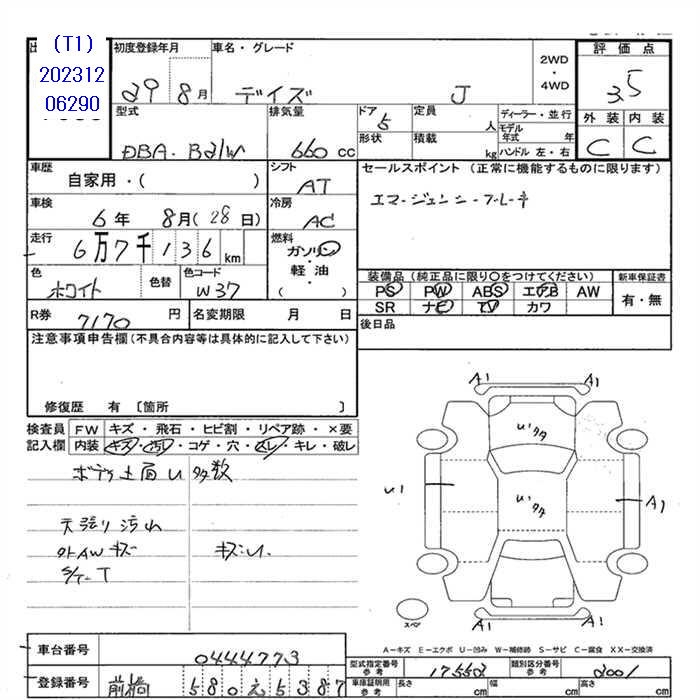 (T1)
202312
06290
初度登録年月
29 8月
車名・グレード
デイズ J
2WD
・
4WD
評価点
3.5
外装 内装
C C
型式
DBA-B21W
排気量
660 CC
ドア
5
形状
定員
人
積載
kg
ディーラー・並行
モデル年式 年
ハンドル 左・右
車歴
自家用・( )
シフト
AT
セールスポイント (正常に機能するものに限ります)
エマージェンシーブレーキ
車検
6年 8月(28日)
冷房
AC
走行
6万7千136km
燃料
ガソリン
・
軽油
・
( )
色
ホワイト
色替
色コード
W37
装備品 (純正品に限り○をつけてください)
PS PW ABS エアB AW
SR ナビ TV カワ
新車保証書
有・無
R券
7170円
名変期限 月 日
後日品
注意事項申告欄(不具合内容等は具体的に記入して下さい)
修復歴 有 〔箇所 〕
検査員 FW キズ・飛石・ヒビ割・リペア跡・×要
記入欄 内装 キズ・汚レ・コゲ・穴・スレ・キレ・破レ
ボディ上面U多数
天張り汚れ
外AWキズ キズ・U.
S/T-T
A1 A1
U1タタ
U1
U1タタ
A1
A1 A1
スペア
A-キズ E-エクボ U-凹み W-補修跡 S-サビ C-腐食 XX-交換済
車台番号
0444773
登録番号
前橋 580 え 5387
型式指定番号
参考
17553
類別区分番号
参考
2001
車庫証明用
参考
長さ cm
幅 cm
高さ cm